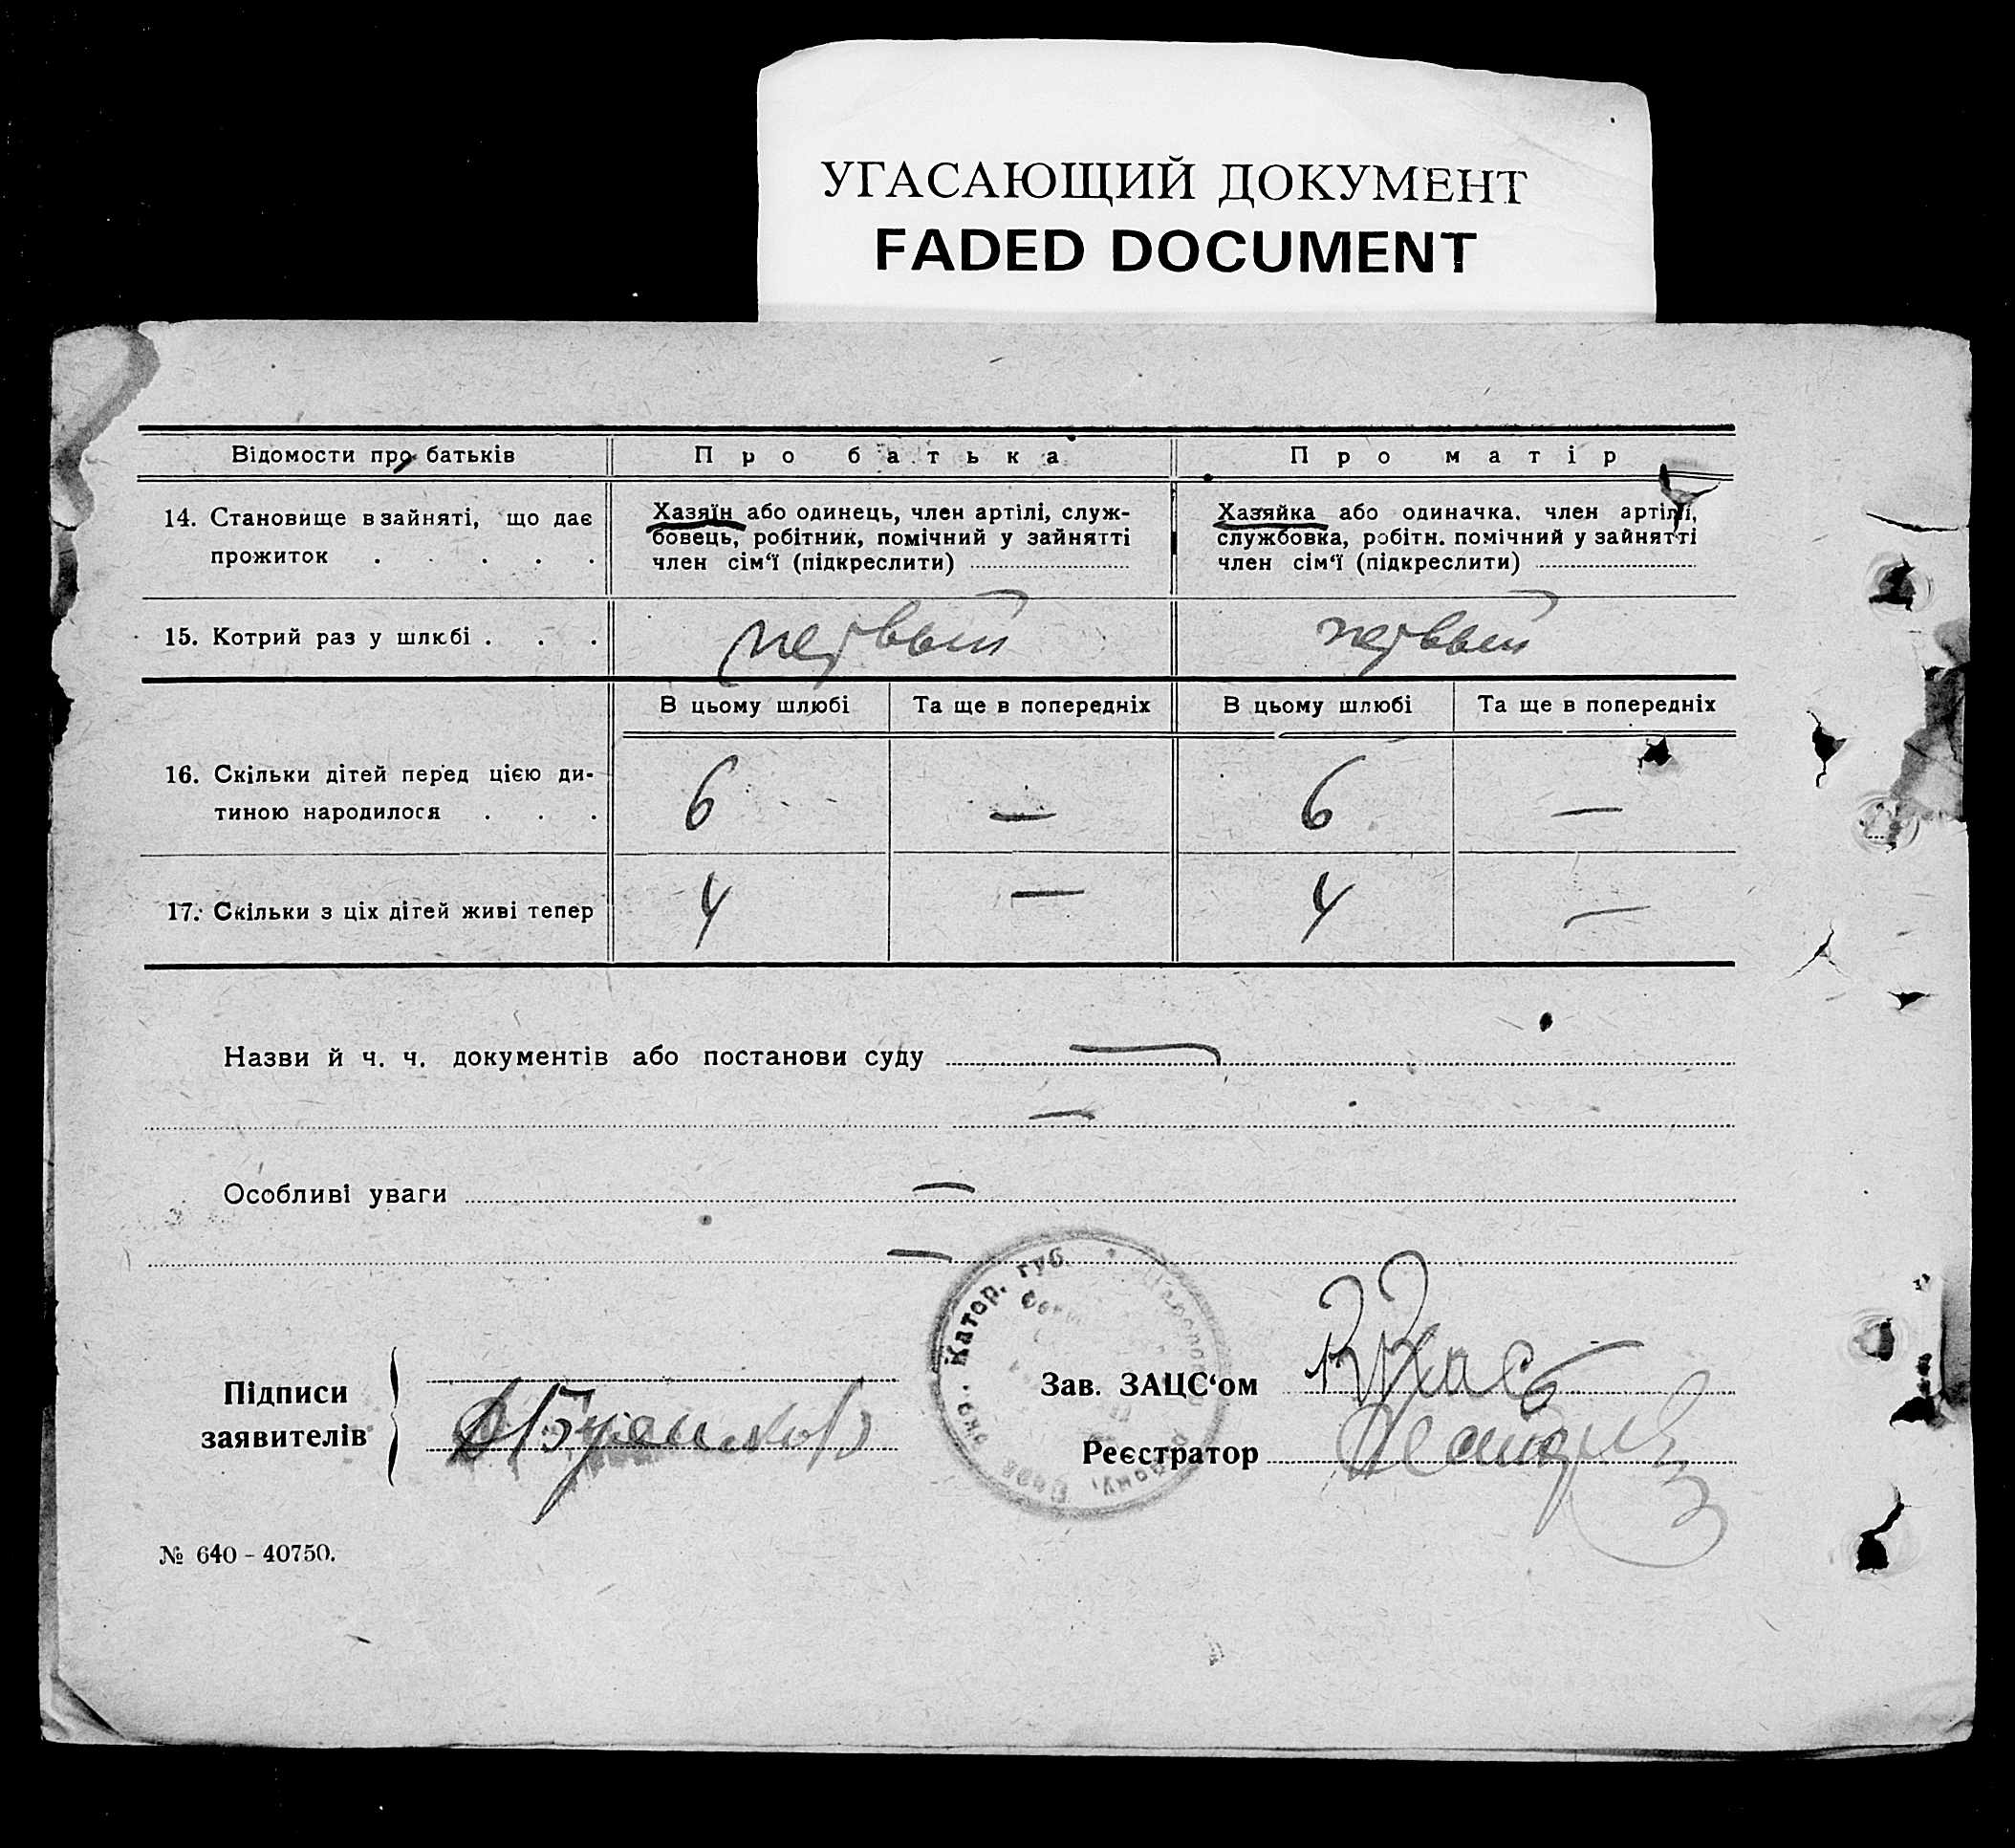 УГАСАЮЩИЙ ДОКУМЕНТ
FADED DOCUMENT
Відомости про батьків
Про батька
Про матір
14. Становище в зайняті, що дає
прожиток . . . . .
Хазяїн або одинець, член артілі, служ-
бовець, робітник, помічний у зайнятті
член сім‘ї (підкреслити)
Хазяйка або одиначка, член артілі,
службовка, робітн. помічний у зайнятті
член сім‘ї (підкреслити)
15. Котрий раз у шлюбі . . .
первый
первый
В цьому шлюбі
Та ще в попередніх
В цьому шлюбі
Та ще в попередніх
16. Скільки дітей перед цією ди-
тиною народилося . . .
6
—
6
—
17. Скільки з ціх дітей живі тепер
4
—
4
—
Назви й ч. ч. документів або постанови суду —
—
Особливі уваги —
—
Катор. губ.
Підписи
заявителів
Зав. ЗАЦС‘ом
Реєстратор
№ 640 - 40750.